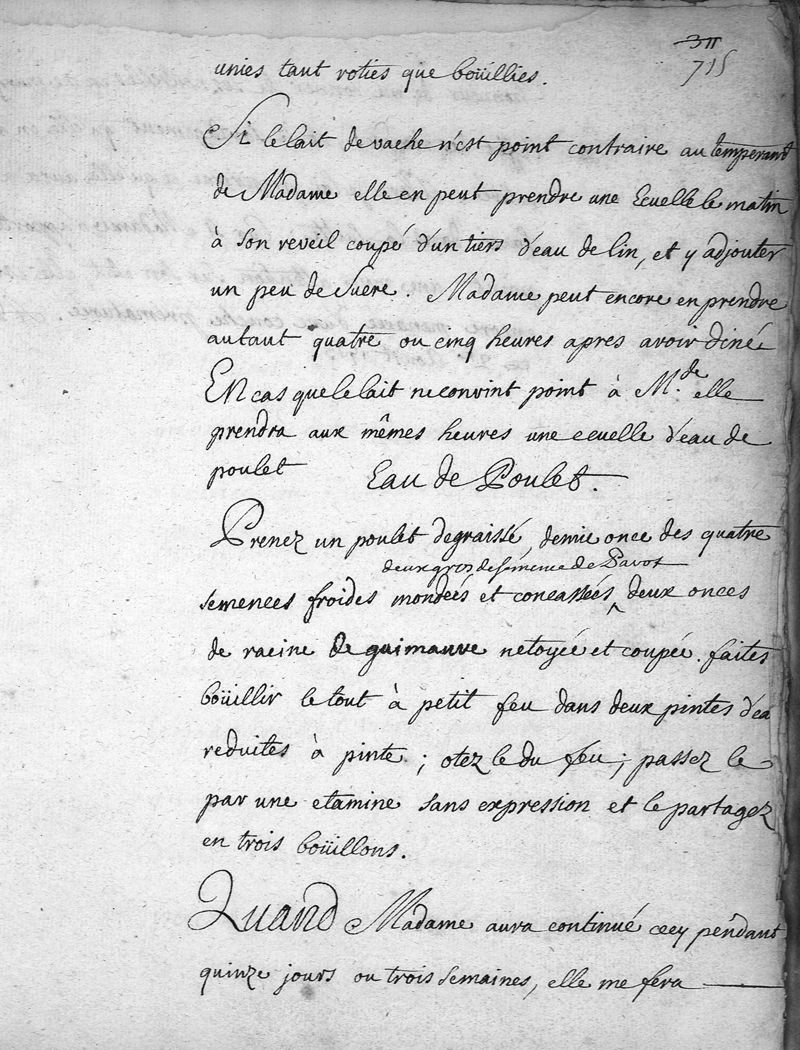 311
715
unies tant roties que boüillies.
Si le lait de vache n'est point contraire au temperant
de Madame elle en peut prendre une Ecuelle le matin
à son reveil coupé d'un tiers d'eau de lin, et y adjouter
un peu de sucre. Madame peut encore en prendre
autant quatre ou cinq heures apres avoir diné
En cas que le lait ne convint point à M.de elle
prendra aux mêmes heures une ecuelle d'eau de
poulet Eau de Poulet.
Prenez un poulet degraissé, demie once des quatre
deux gros de semence de Pavot
semences froides mondées et concassées ^ deux onces
de racine de guimauve netoyée et coupée. faites
boüillir le tout à petit feu dans deux pintes d'ea
reduites à pinte ; otez le du feu ; passez le
par une etamine sans expression et le partagez
en trois boüillons.
Quand Madame aura continué cecy pendant
quinze jours ou trois semaines, elle me fera